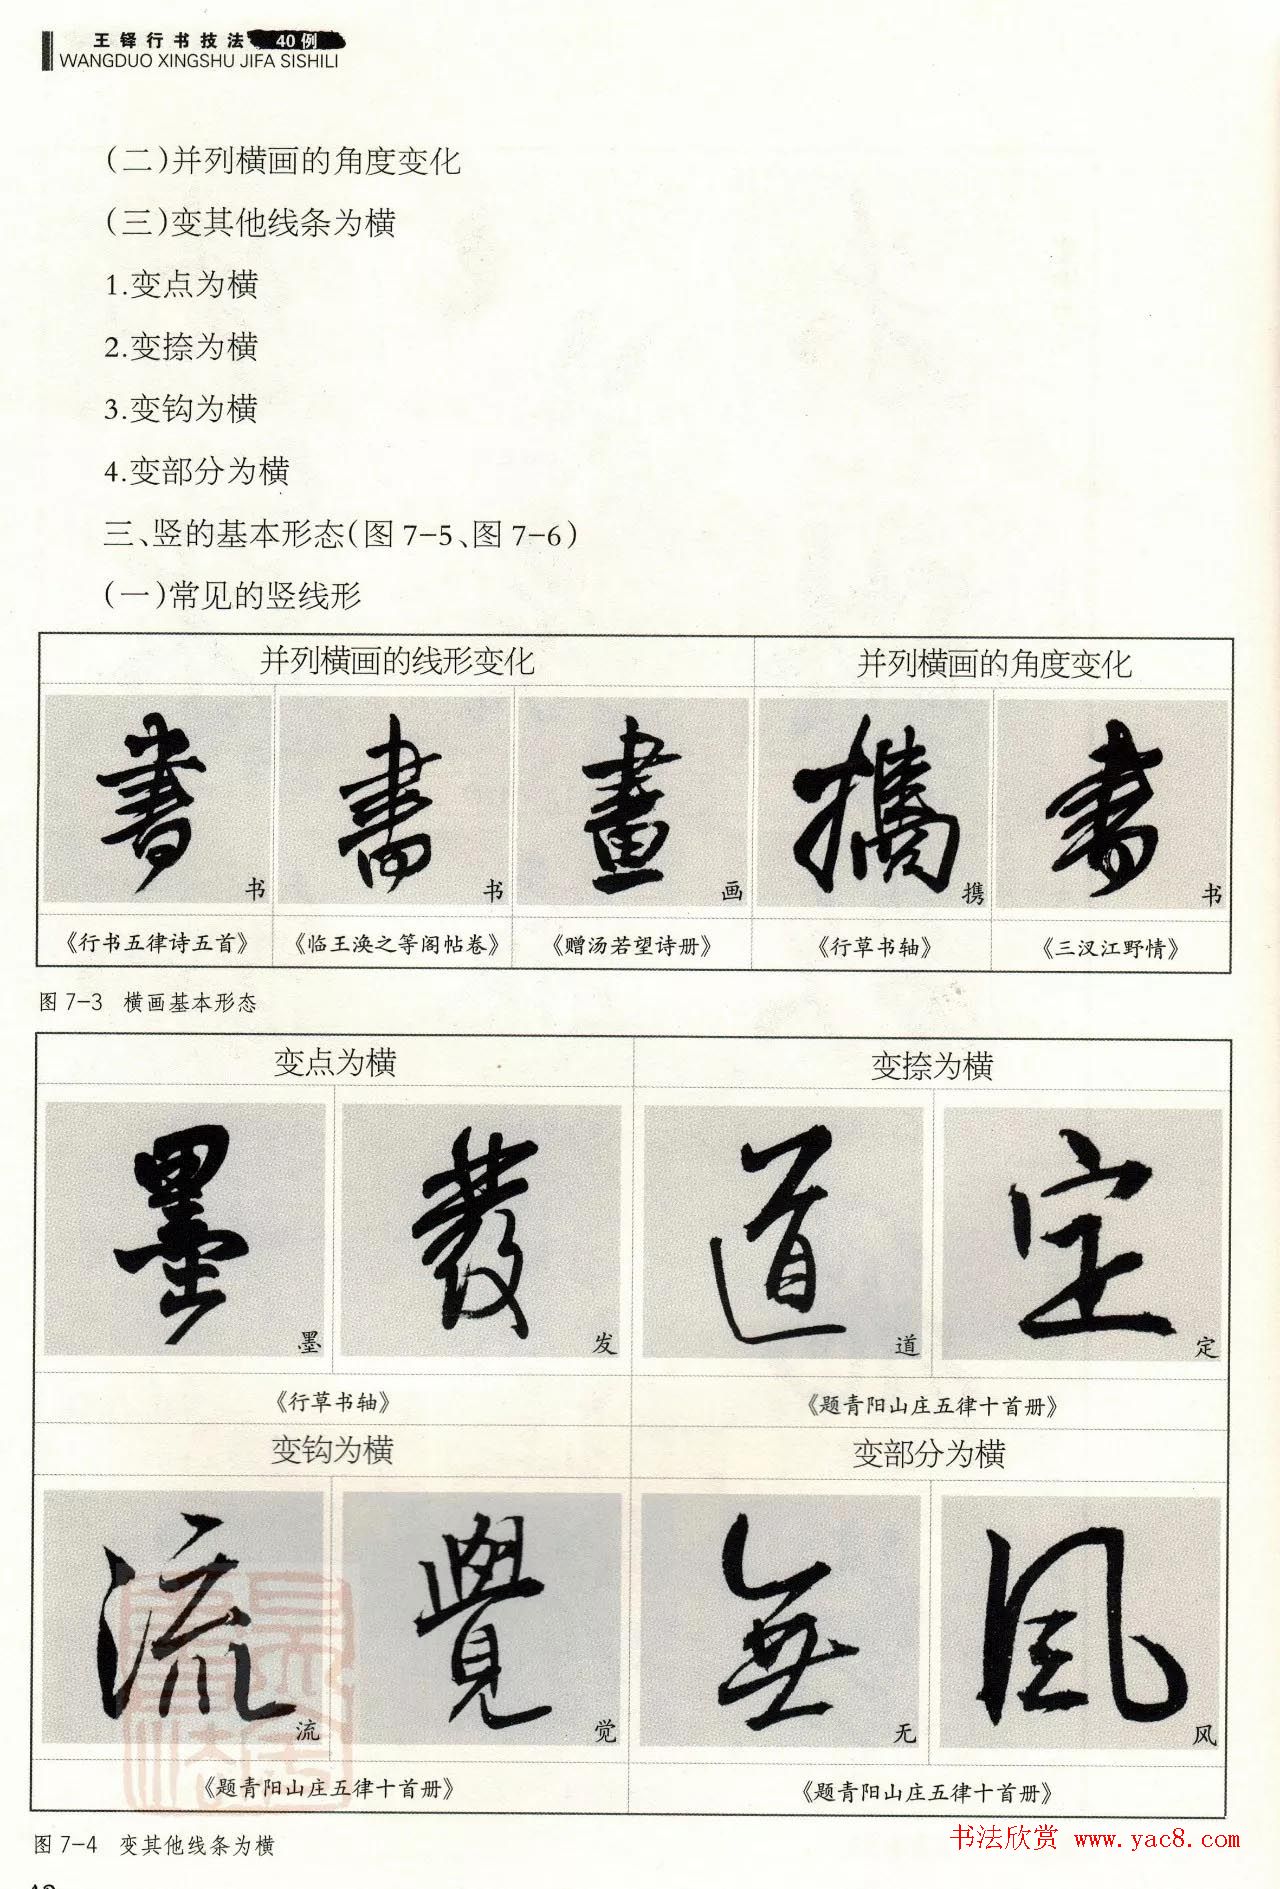 王铎行书技法 40例
WANGDUO XINGSHU JIFA SISHILI
(二)并列横画的角度变化
(三)变其他线条为横
1.变点为横
2.变捺为横
3.变钩为横
4.变部分为横
三、竖的基本形态(图7-5、图7-6)
(一)常见的竖线形
并列横画的线形变化 并列横画的角度变化
書 書 畫 攜 書
书 书 画 携 书
《行书五律诗五首》 《临王涣之等阁帖卷》 《赠汤若望诗册》 《行草书轴》 《三汊江野情》
图7-3 横画基本形态
变点为横 变捺为横
墨 發 道 定
墨 发 道 定
《行草书轴》 《题青阳山庄五律十首册》
变钩为横 变部分为横
流 覺 無 風
流 觉 无 风
《题青阳山庄五律十首册》 《题青阳山庄五律十首册》
图7-4 变其他线条为横
书法欣赏 www.yac8.com